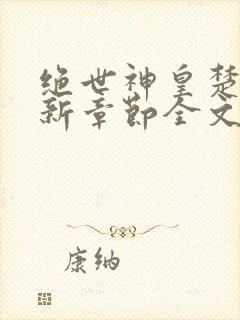 绝世神皇楚
新章节全文
康纳